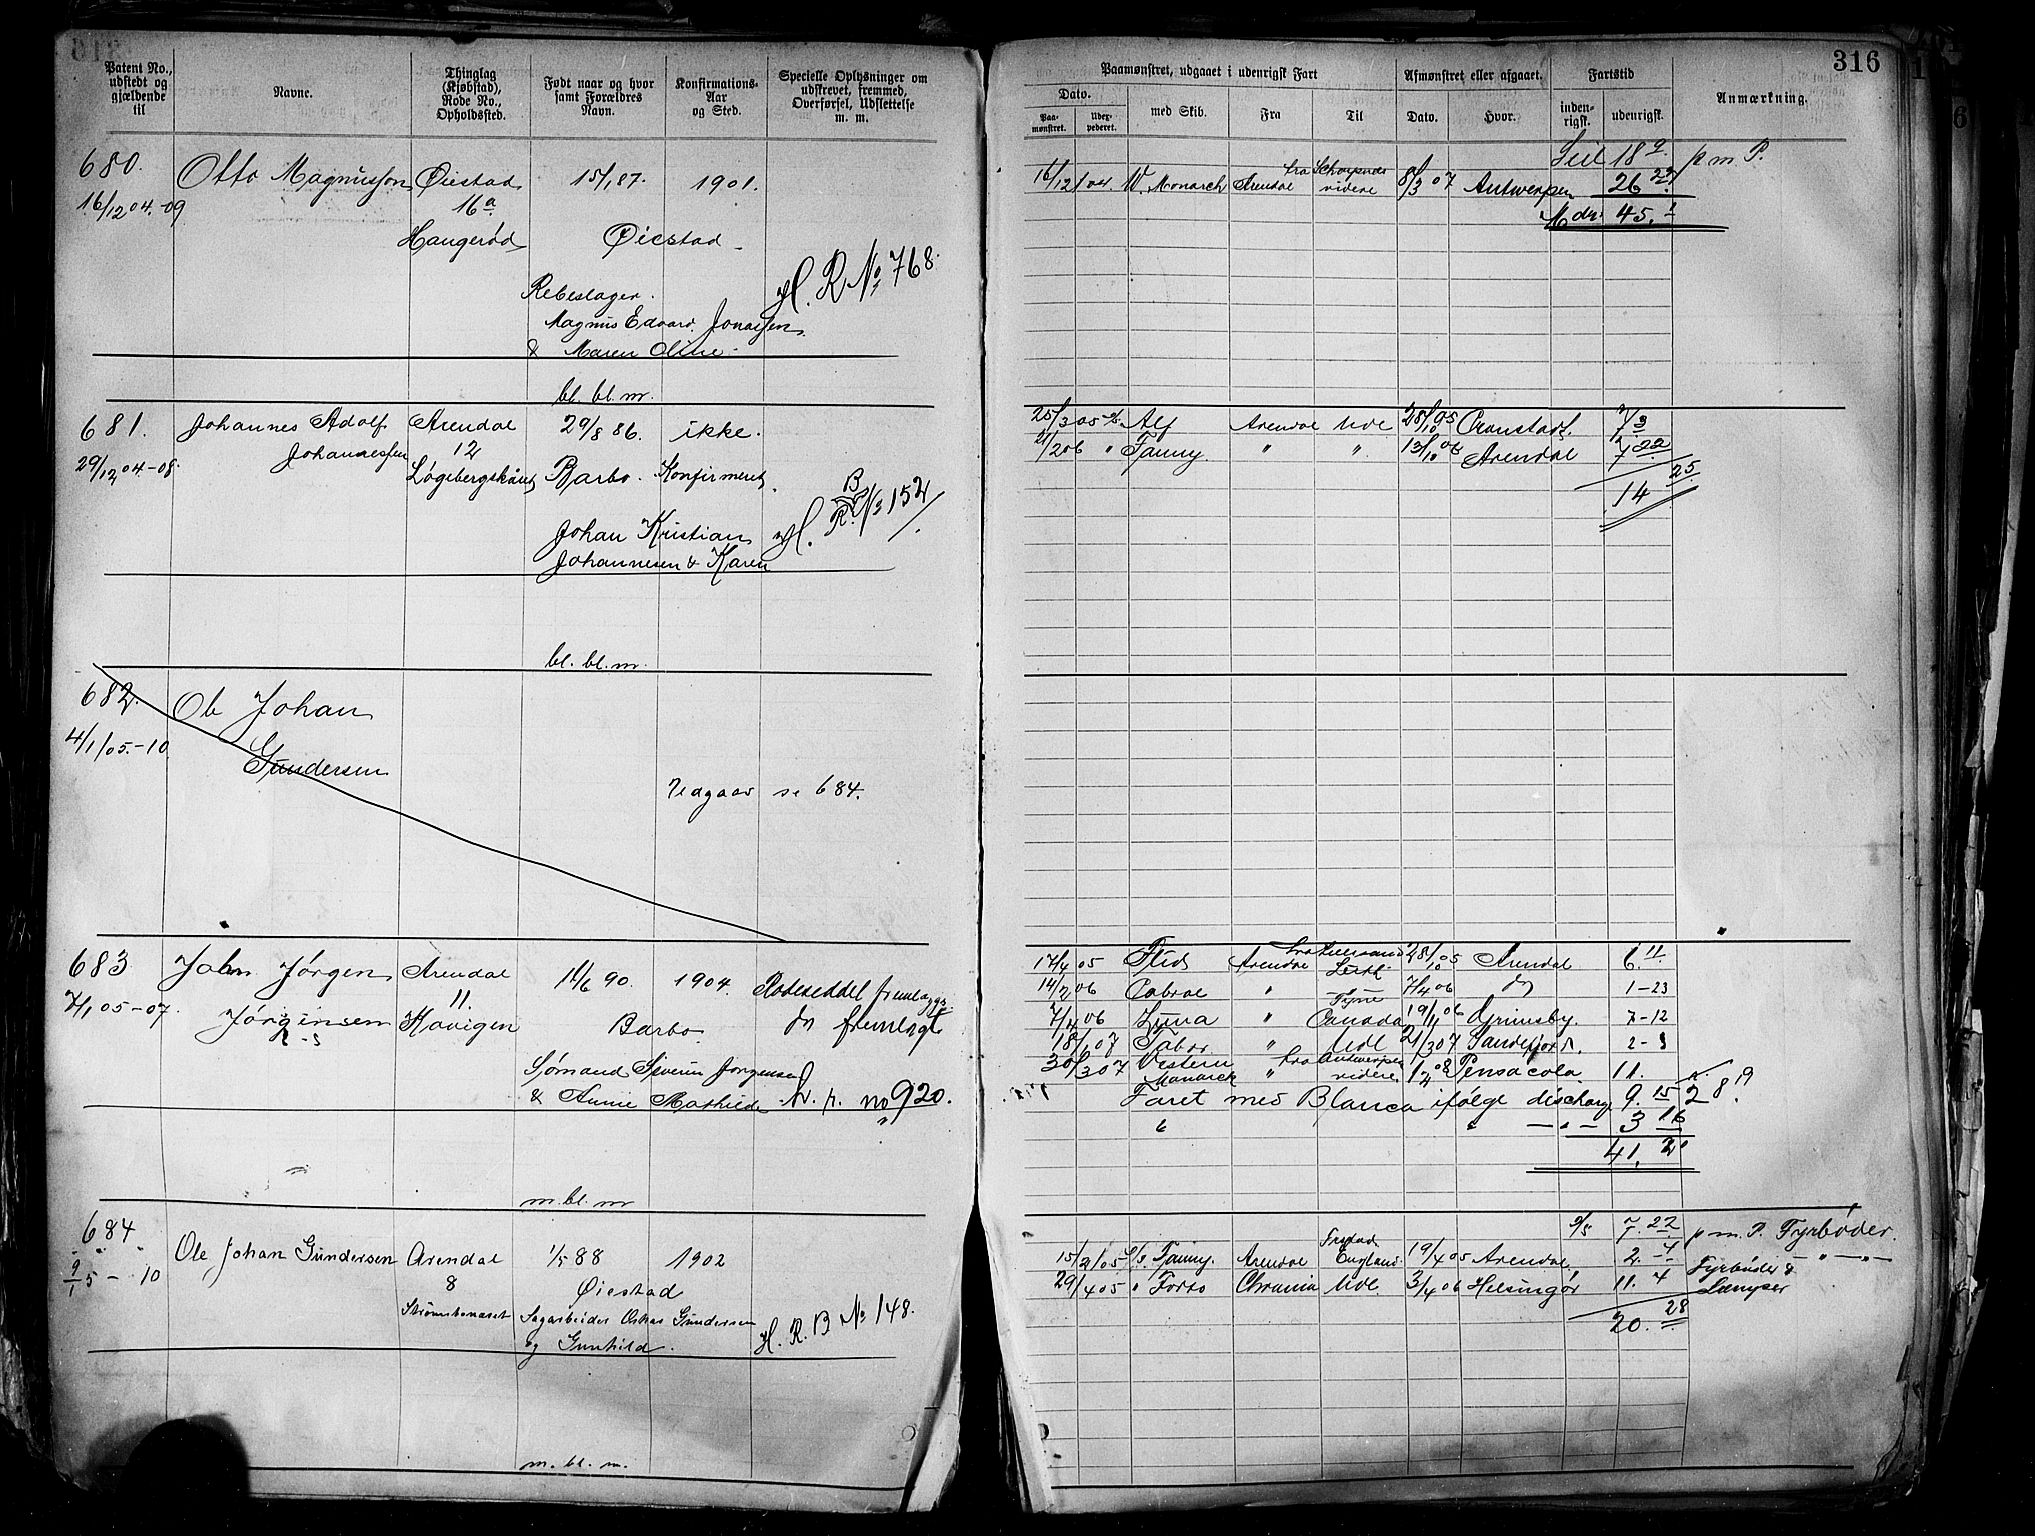 316
Patent No., udstedt og gjældende til
Navne.
Thinglag (Kjøbstad), Rode No., Opholdssted.
Født naar og hvor samt Forældres Navn.
Konfirmations-Aar og Sted.
Specielle Oplysninger om udskrevet, fremmed, Overførsel, Udslettelse m. m.
Paamønstret, udgaaet i udenrigsk Fart
Dato.
Paa-mønstret.
Udex-pederet.
med Skib.
Fra
Til
Afmønstret eller afgaaet.
Dato.
Hvor.
Fartstid
inden-rigsk.
udenrigsk.
Anmærkning.
680. Otto Magnusson Øiestad 15/1 87. 1901.
16/12 04.-09 16a
Haugerød Øiestad
H. R No 768.
Rebeslager.
Magnus Edvard Jonassen
& Maren Oline
bl. bl. m.
Seil 18 9 p m P.
16/12 04 W. Monarch Arendal videre 8/3 07 Antwerpen 26 22
Mdr. 45. 1
681. Johannes Adolf Arendal 29/8 86. ikke.
29/12 04-08. Johannessen 12
Barbo. Konfirmeret.
H. R. B No 152
Johan Kristian
Johannesen & Karen
bl. bl. m.
25/3 05 Alf Arendal Udl 28/10 05 Cronstadt. 7 3
21/2 06 " Fanny " " 13/10 06 Arendal 7 22
14 25
682. Ole Johan
4/1 05.-10 Gundersen
Udgaar se 684.
683 John Jørgen Arendal 11/6 90. 1904. Rodeseddel fremlægges
7/1 05-07. Jørgensen 11. Barbo do fremlagt
Havigen
Sømand Severin Jørgensen
& Annie Mathilde h. r. no 920.
m. bl. m
17/4 05 Arendal Leith 28/10 05 Arendal 6. 11
14/2 06 " Tyne 7/4 06 do 1-23
7/4 06 Luna " Canada 19/11 06 Grimsby. 7-12
18/1 07 Tabor " Udl 21/3 07 Sandefjord. 2-3
30/3 07 Western Monarch " fra Antwerpen videre 1/4 08 Pensacola. 11.
Faret med Blanca ifølge discharge 9. 15
" " — " — 3 16
41. 21
684 Ole Johan Gundersen Arendal 1/5 88 1902
9/1 5 - 10 8 Øiestad
Sagarbeider Oskar Gundersen
og Gunhild. H. R. B No 148.
m. bl. m.
7. 22 p m. P. Fyrbøder.
15/2 05 Fanny. Arendal England. 19/4 05 Arendal. 2. 4 — " —
29/4 05 " Forto Chrania Udl 3/4 06 Helsingør 11. 4 Fyrbøder & Lemper
20. 28